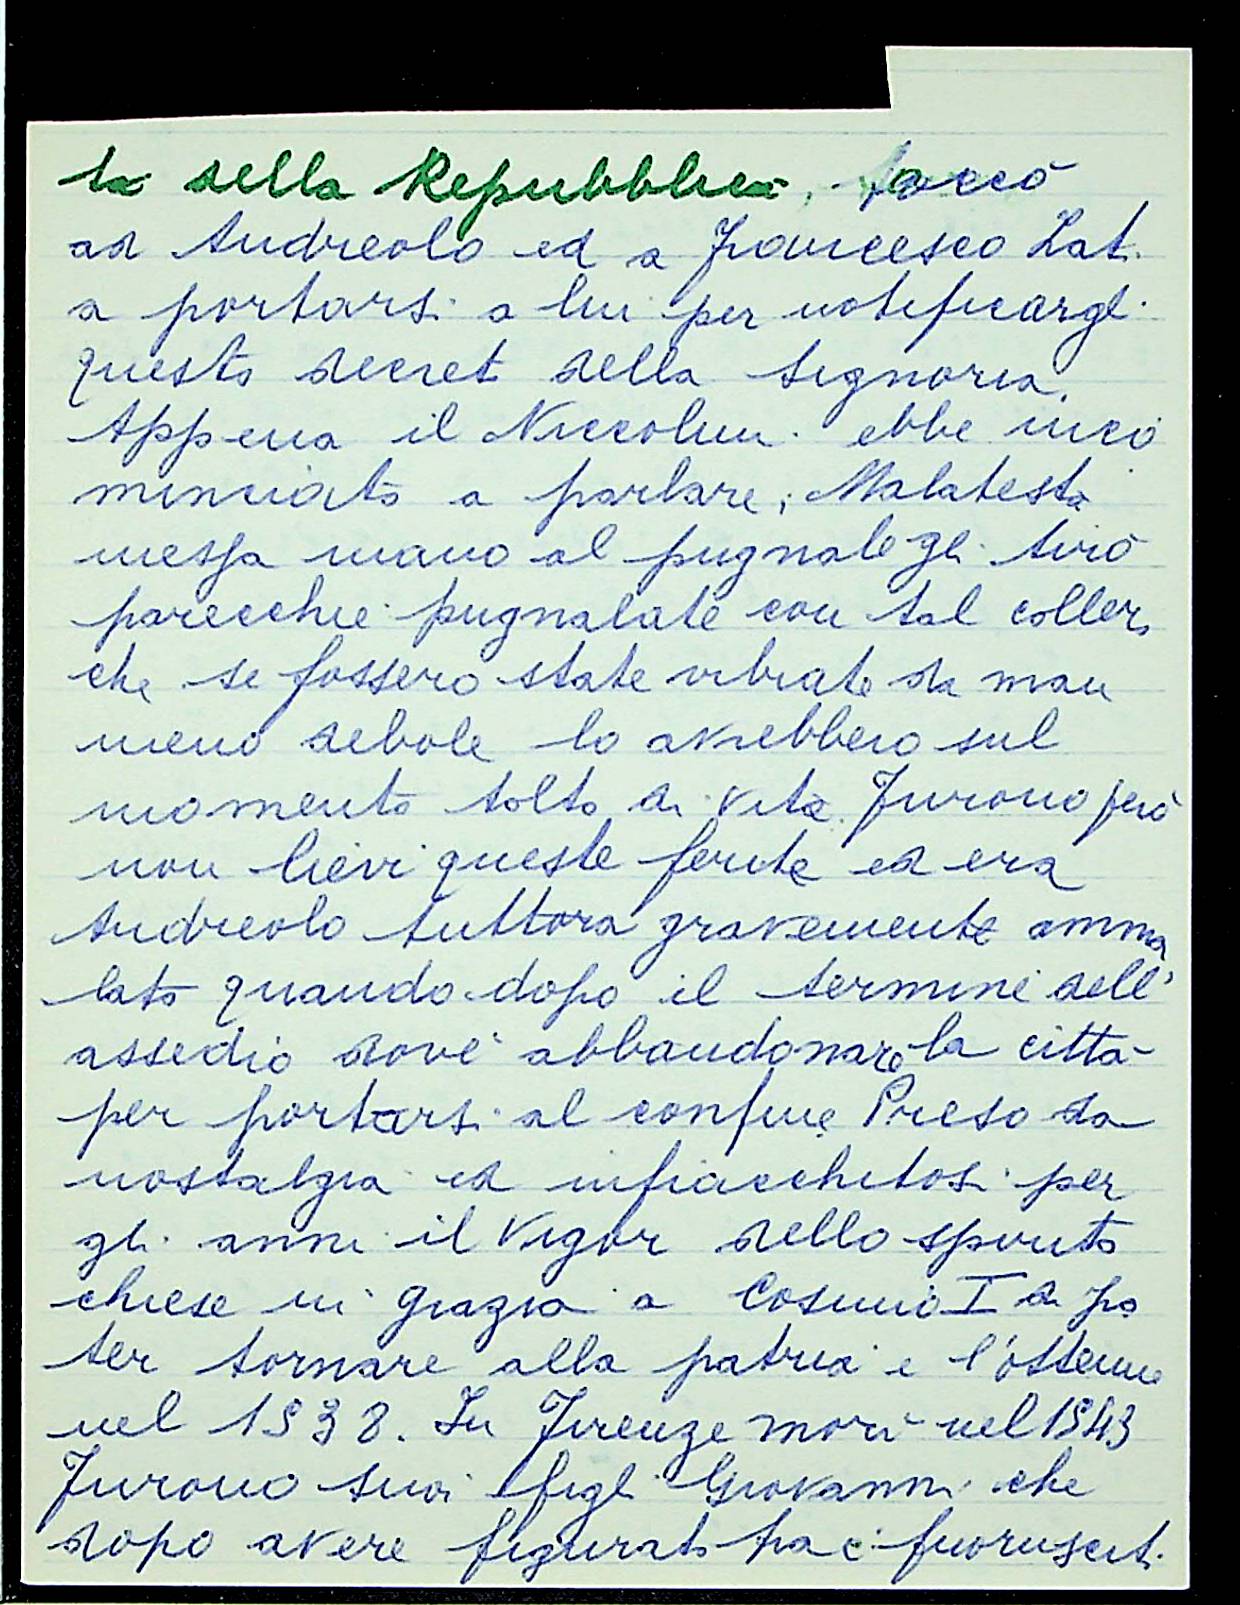 ta della Repubblica, toccò
ad Andreolo ed a Francesco Zati
a portarsi a lui per notificargli
questo decret della Signoria.
Appena il Niccolini ebbe inco
minciato a parlare, Malatesta
messa mano al pugnale gli tirò
parecchie pugnalate con tal collera
che se fossero state vibrate da man
meno debole lo avrebbero sul
momento tolto di vita. Furono però
non lievi queste ferite ed era
Andreolo tuttora gravemente amma
lato quando dopo il termine dell'
assedio dovè abbandonare la città
per portarsi al confine. Preso da
nostalgia ed infiacchitosi per
gli anni il vigor dello spirito
chiese in grazia a Cosimo I di po
ter tornare alla patria e l'ottenne
nel 1538. In Firenze morì nel 1543
Furono suoi figli Giovanni che
dopo avere figurato fra i fuorusciti